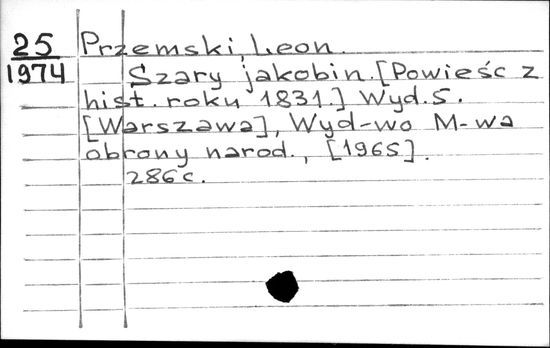 25
1974
Przemski, Leon.
Szary jakobin. [Powieść z
hist. roku 1831.] Wyd. 5.
[Warszawa], Wyd-wo M-wa
obrony narod., [1965].
286 c.